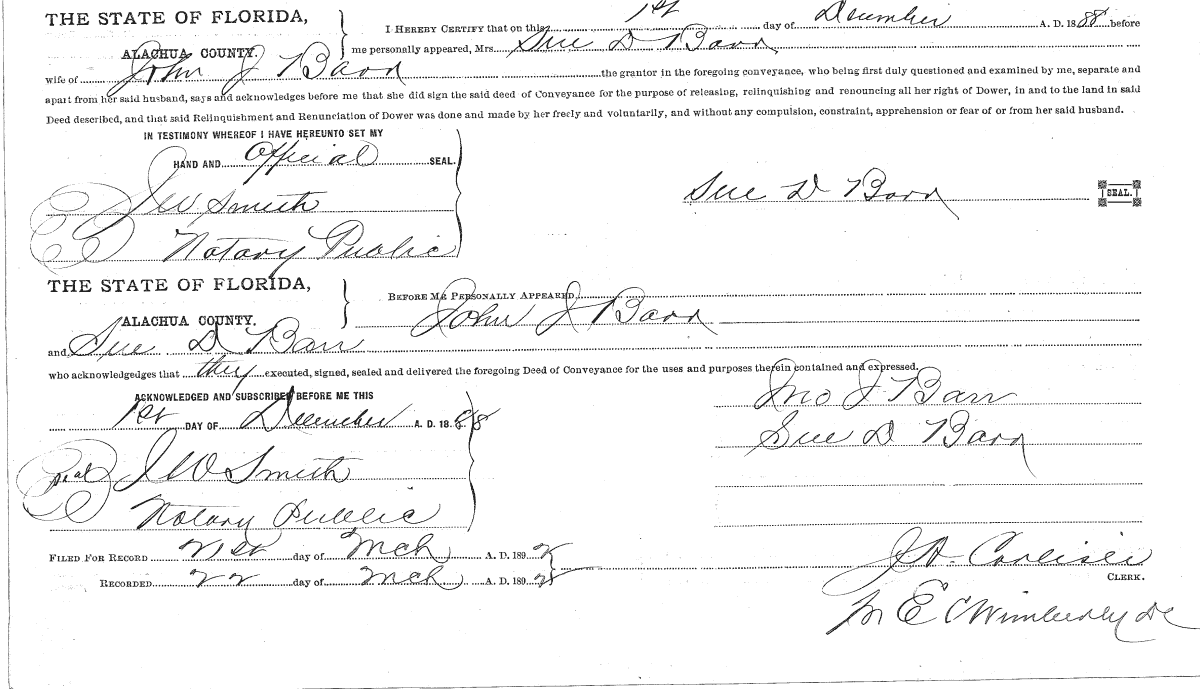 THE STATE OF FLORIDA,
ALACHUA COUNTY.
I HEREBY CERTIFY that on this 1st day of December A. D. 1888 before
me personally appeared, Mrs. Sue D Barr
wife of John J Barr the grantor in the foregoing conveyance, who being first duly questioned and examined by me, separate and
apart from her said husband, says and acknowledges before me that she did sign the said deed of Conveyance for the purpose of releasing, relinquishing and renouncing all her right of Dower, in and to the land in said
Deed described, and that said Relinquishment and Renunciation of Dower was done and made by her freely and voluntarily, and without any compulsion, constraint, apprehension or fear of or from her said husband.
IN TESTIMONY WHEREOF I HAVE HEREUNTO SET MY
HAND AND Official SEAL.
Sue D Barr SEAL.
J W Smith
Notary Public
THE STATE OF FLORIDA,
ALACHUA COUNTY.
BEFORE ME PERSONALLY APPEARED
John J Barr
and, Sue D Barr
who acknowledgedges that they executed, signed, sealed and delivered the foregoing Deed of Conveyance for the uses and purposes therein contained and expressed.
ACKNOWLEDGED AND SUBSCRIBED BEFORE ME THIS
1st DAY OF December A. D. 1888
Jno J Barr
Sue D Barr
Seal J W Smith
Notary Public
FILED FOR RECORD 21st day of Mch A. D. 1892
RECORDED 22 day of Mch A. D. 1892
CLERK.
E C Wimberly DC